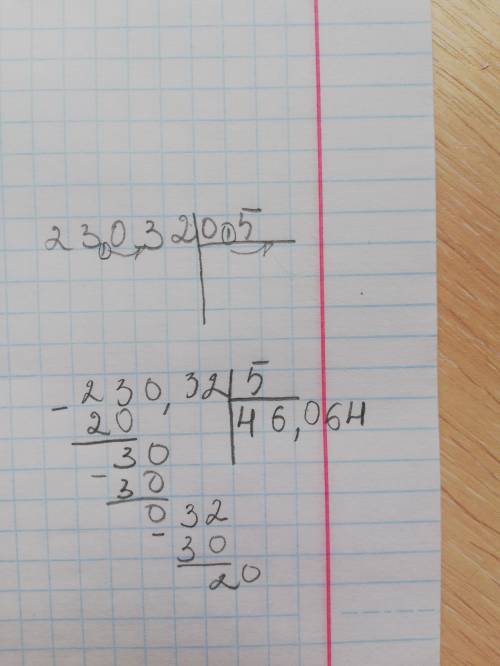 23,032 0,5
- 230,32 5
20 46,064
30
- 30
0 32
- 30
20